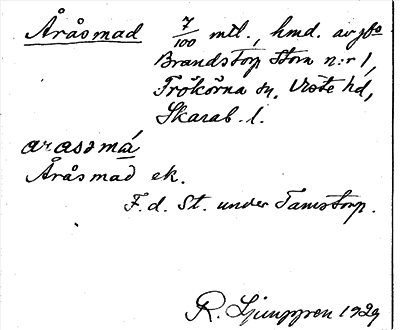 Åråsmad 7/100 mtl., hmd. av gbo
Brandstorp Stora n:r 1,
Trökörna sn, Viste hd,
Skarab. l.
arasmá
Åråsmad ek.
F. d. st. under Tamstorp.
R. Ljunggren 1929